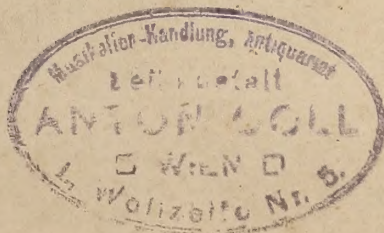 Musikalien-Handlung, Antiquariat
Leihanstalt
ANTON GOLL
WIEN
I., Wollzeile Nr. 5.